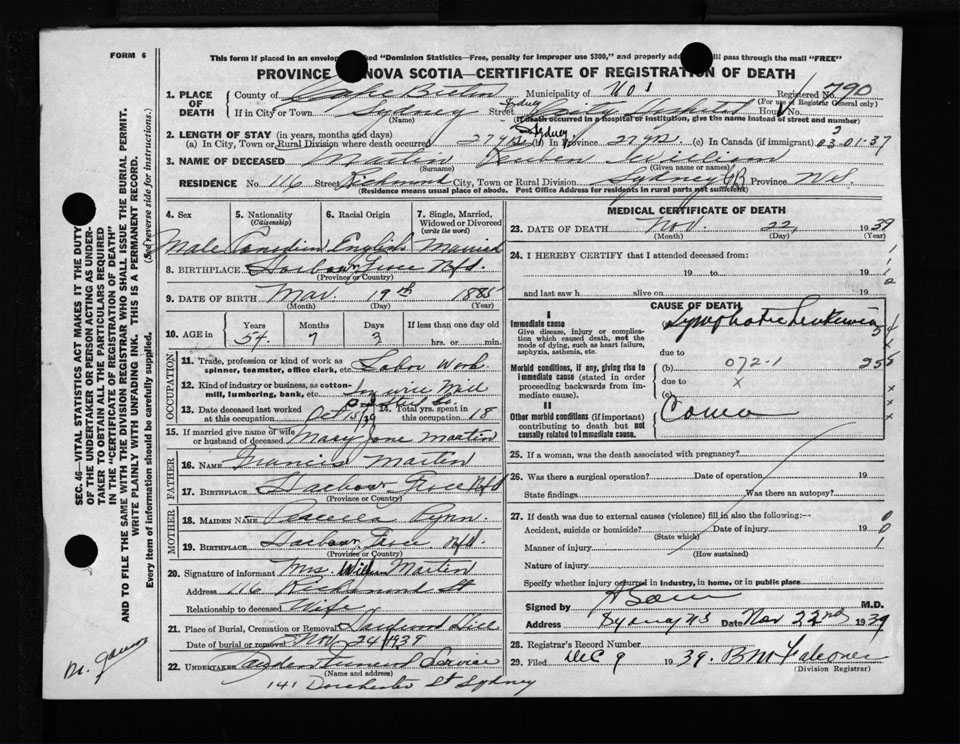 FORM 6
This form if placed in an envelop ked "Dominion Statistics—Free, penalty for improper use $300," and properly add ll pass through the mail "FREE"
PROVINCE NOVA SCOTIA—CERTIFICATE OF REGISTRATION OF DEATH
1. PLACE OF DEATH
County of Cape Breton Municipality of Registered No. 790
(For use of Registrar General only)
If in City or Town Sydney Street Sydney City Hospital House
(Name) (If death occurred in a hospital or institution, give the name instead of street and number)
2. LENGTH OF STAY (in years, months and days)
(a) In City, Town or Rural Division where death occurred 27 yrs (b) In Province 27 yrs (c) In Canada (if immigrant)
Sydney
03-01-37
3. NAME OF DECEASED Martin Reuben William
(Surname) (Given name or names)
RESIDENCE No. 116 Street Richmond City, Town or Rural Division Sydney CB Province N.S.
(Residence means usual place of abode. Post Office Address for residents in rural parts not sufficient)
4. Sex
Male
5. Nationality (Citizenship)
Canadian
6. Racial Origin
English
7. Single, Married, Widowed or Divorced (write the word)
Married
8. BIRTHPLACE Harbour Grace Nfd.
(Province or Country)
9. DATE OF BIRTH Mar. 19th 1885
(Month) (Day) (Year)
10. AGE in
Years Months Days If less than one day old
54. 7 3 hrs. or min.
OCCUPATION
11. Trade, profession or kind of work as spinner, teamster, office clerk, etc. Labor Work
12. Kind of industry or business, as cotton-mill, lumbering, bank, etc. wire Mill
Steel Co.
13. Date deceased last worked at this occupation Oct 15/39
14. Total yrs. spent in this occupation 18
15. If married give name of wife or husband of deceased Mary Jane Martin
FATHER
16. NAME Francis Martin
17. BIRTHPLACE Harbour Grace Nfd
(Province or Country)
MOTHER
18. MAIDEN NAME Pynn.
19. BIRTHPLACE Harbour Grace. Nfd.
(Province or Country)
20. Signature of informant Mrs. William Martin
Address 116 Richmond St
Relationship to deceased Wife
21. Place of Burial, Cremation or Removal Hardwood Hill
Date of burial or removal Nov 24 1939
22. UNDERTAKER Funeral Service
(Name and address)
141 Dorchester St Sydney
MEDICAL CERTIFICATE OF DEATH
23. DATE OF DEATH Nov. 22, 1939
(Month) (Day) (Year)
24. I HEREBY CERTIFY that I attended deceased from:
19 to 19
and last saw h alive on 19
CAUSE OF DEATH
I
Immediate cause
Give disease, injury or complication which caused death, not the mode of dying, such as heart failure, asphyxia, asthenia, etc.
Lymphatic Leukemia
due to
Morbid conditions, if any, giving rise to immediate cause (stated in order proceeding backwards from immediate cause).
(b) 072-1
due to x
(c)
II
Other morbid conditions (if important) contributing to death but not causally related to immediate cause.
Coma
25. If a woman, was the death associated with pregnancy?
26. Was there a surgical operation? Date of operation 19
State findings Was there an autopsy?
27. If death was due to external causes (violence) fill in also the following:—
Accident, suicide or homicide? Date of injury 19
(State which)
Manner of injury
(How sustained)
Nature of injury
Specify whether injury occurred in industry, in home, or in public place
Signed by M.D.
Address Sydney NS Date Nov 22nd 1939
28. Registrar's Record Number
29. Filed Dec 9 1939. Falconer
(Division Registrar)
SEC. 46—VITAL STATISTICS ACT MAKES IT THE DUTY
OF THE UNDERTAKER OR PERSON ACTING AS UNDER-
TAKER TO OBTAIN ALL THE PARTICULARS REQUIRED
IN THE "CERTIFICATE OF REGISTRATION OF DEATH"
AND TO FILE THE SAME WITH THE DIVISION REGISTRAR WHO SHALL ISSUE THE BURIAL PERMIT.
WRITE PLAINLY WITH UNFADING INK. THIS IS A PERMANENT RECORD.
Every item of information should be carefully supplied. (See reverse side for instructions.)